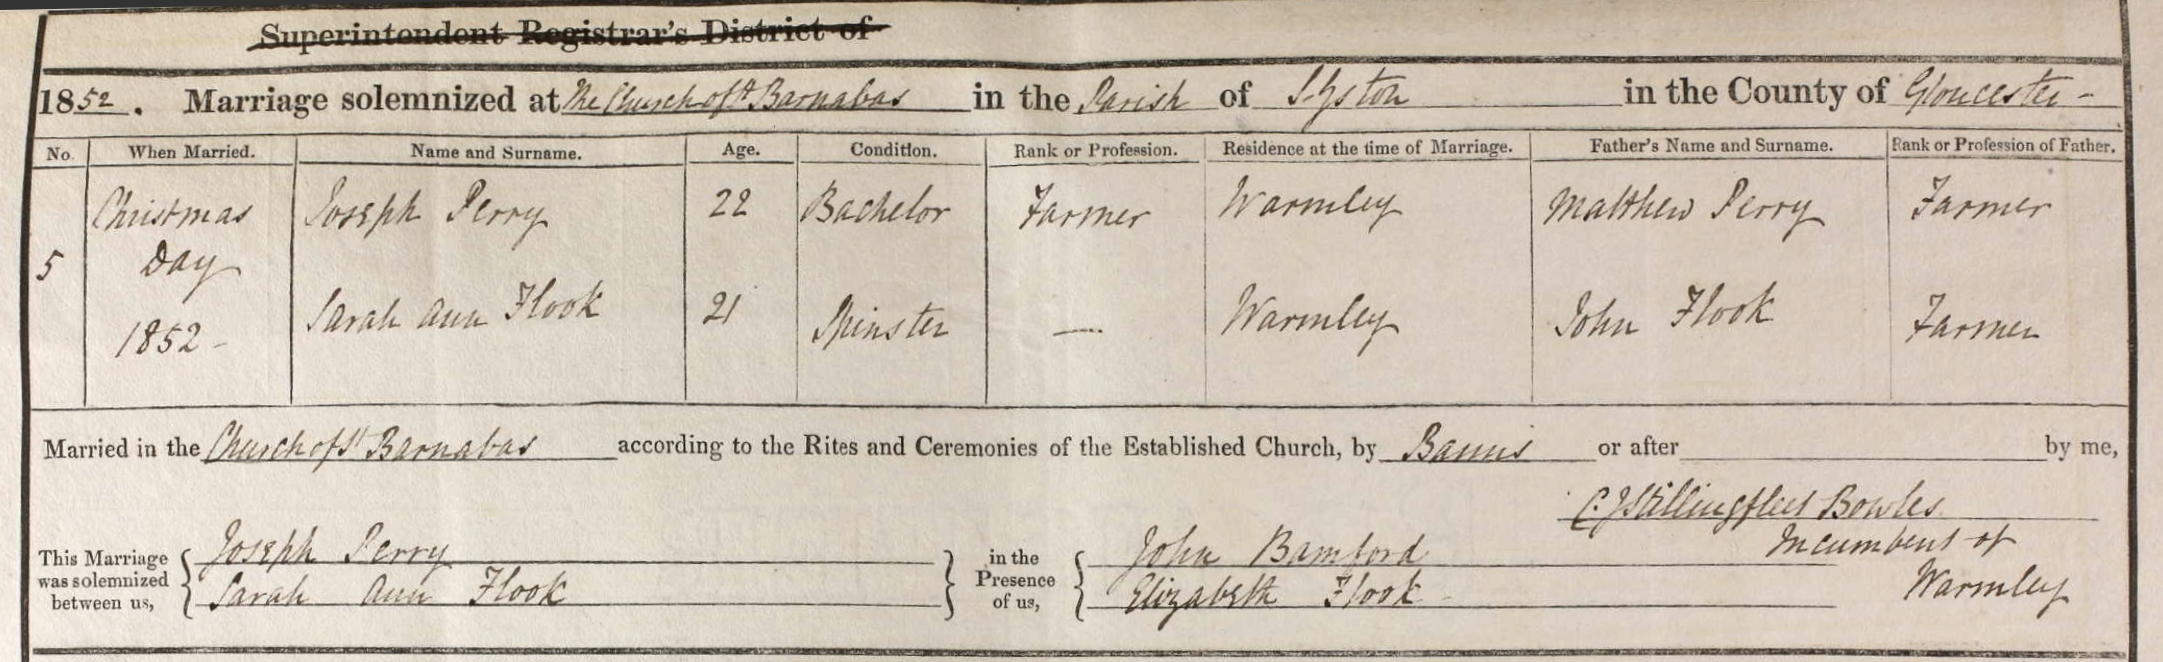 Superintendent Registrar's District of
1852. Marriage solemnized at The Church of St Barnabas in the Parish of Syston in the County of Gloucester -
No. When Married. Name and Surname. Age. Condition. Rank or Profession. Residence at the time of Marriage. Father's Name and Surname. Rank or Profession of Father.
5 Christmas Day 1852 - Joseph Perry 22 Bachelor Farmer Warmley Matthew Perry Farmer
Sarah Ann Flook 21 Spinster — Warmley John Flook Farmer
Married in the Church of St Barnabas according to the Rites and Ceremonies of the Established Church, by Banns or after by me,
C. J Stillingfleet Bowles
Incumbent of
Warmley
This Marriage was solemnized between us,
Joseph Perry
Sarah Ann Flook
in the Presence of us,
John Bamford
Elizabeth Flook